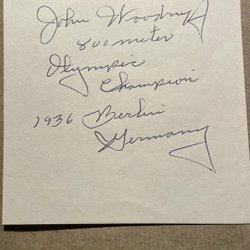 John Woodruff
800 meter
Olympic
Champion
1936 Berlin
Germany